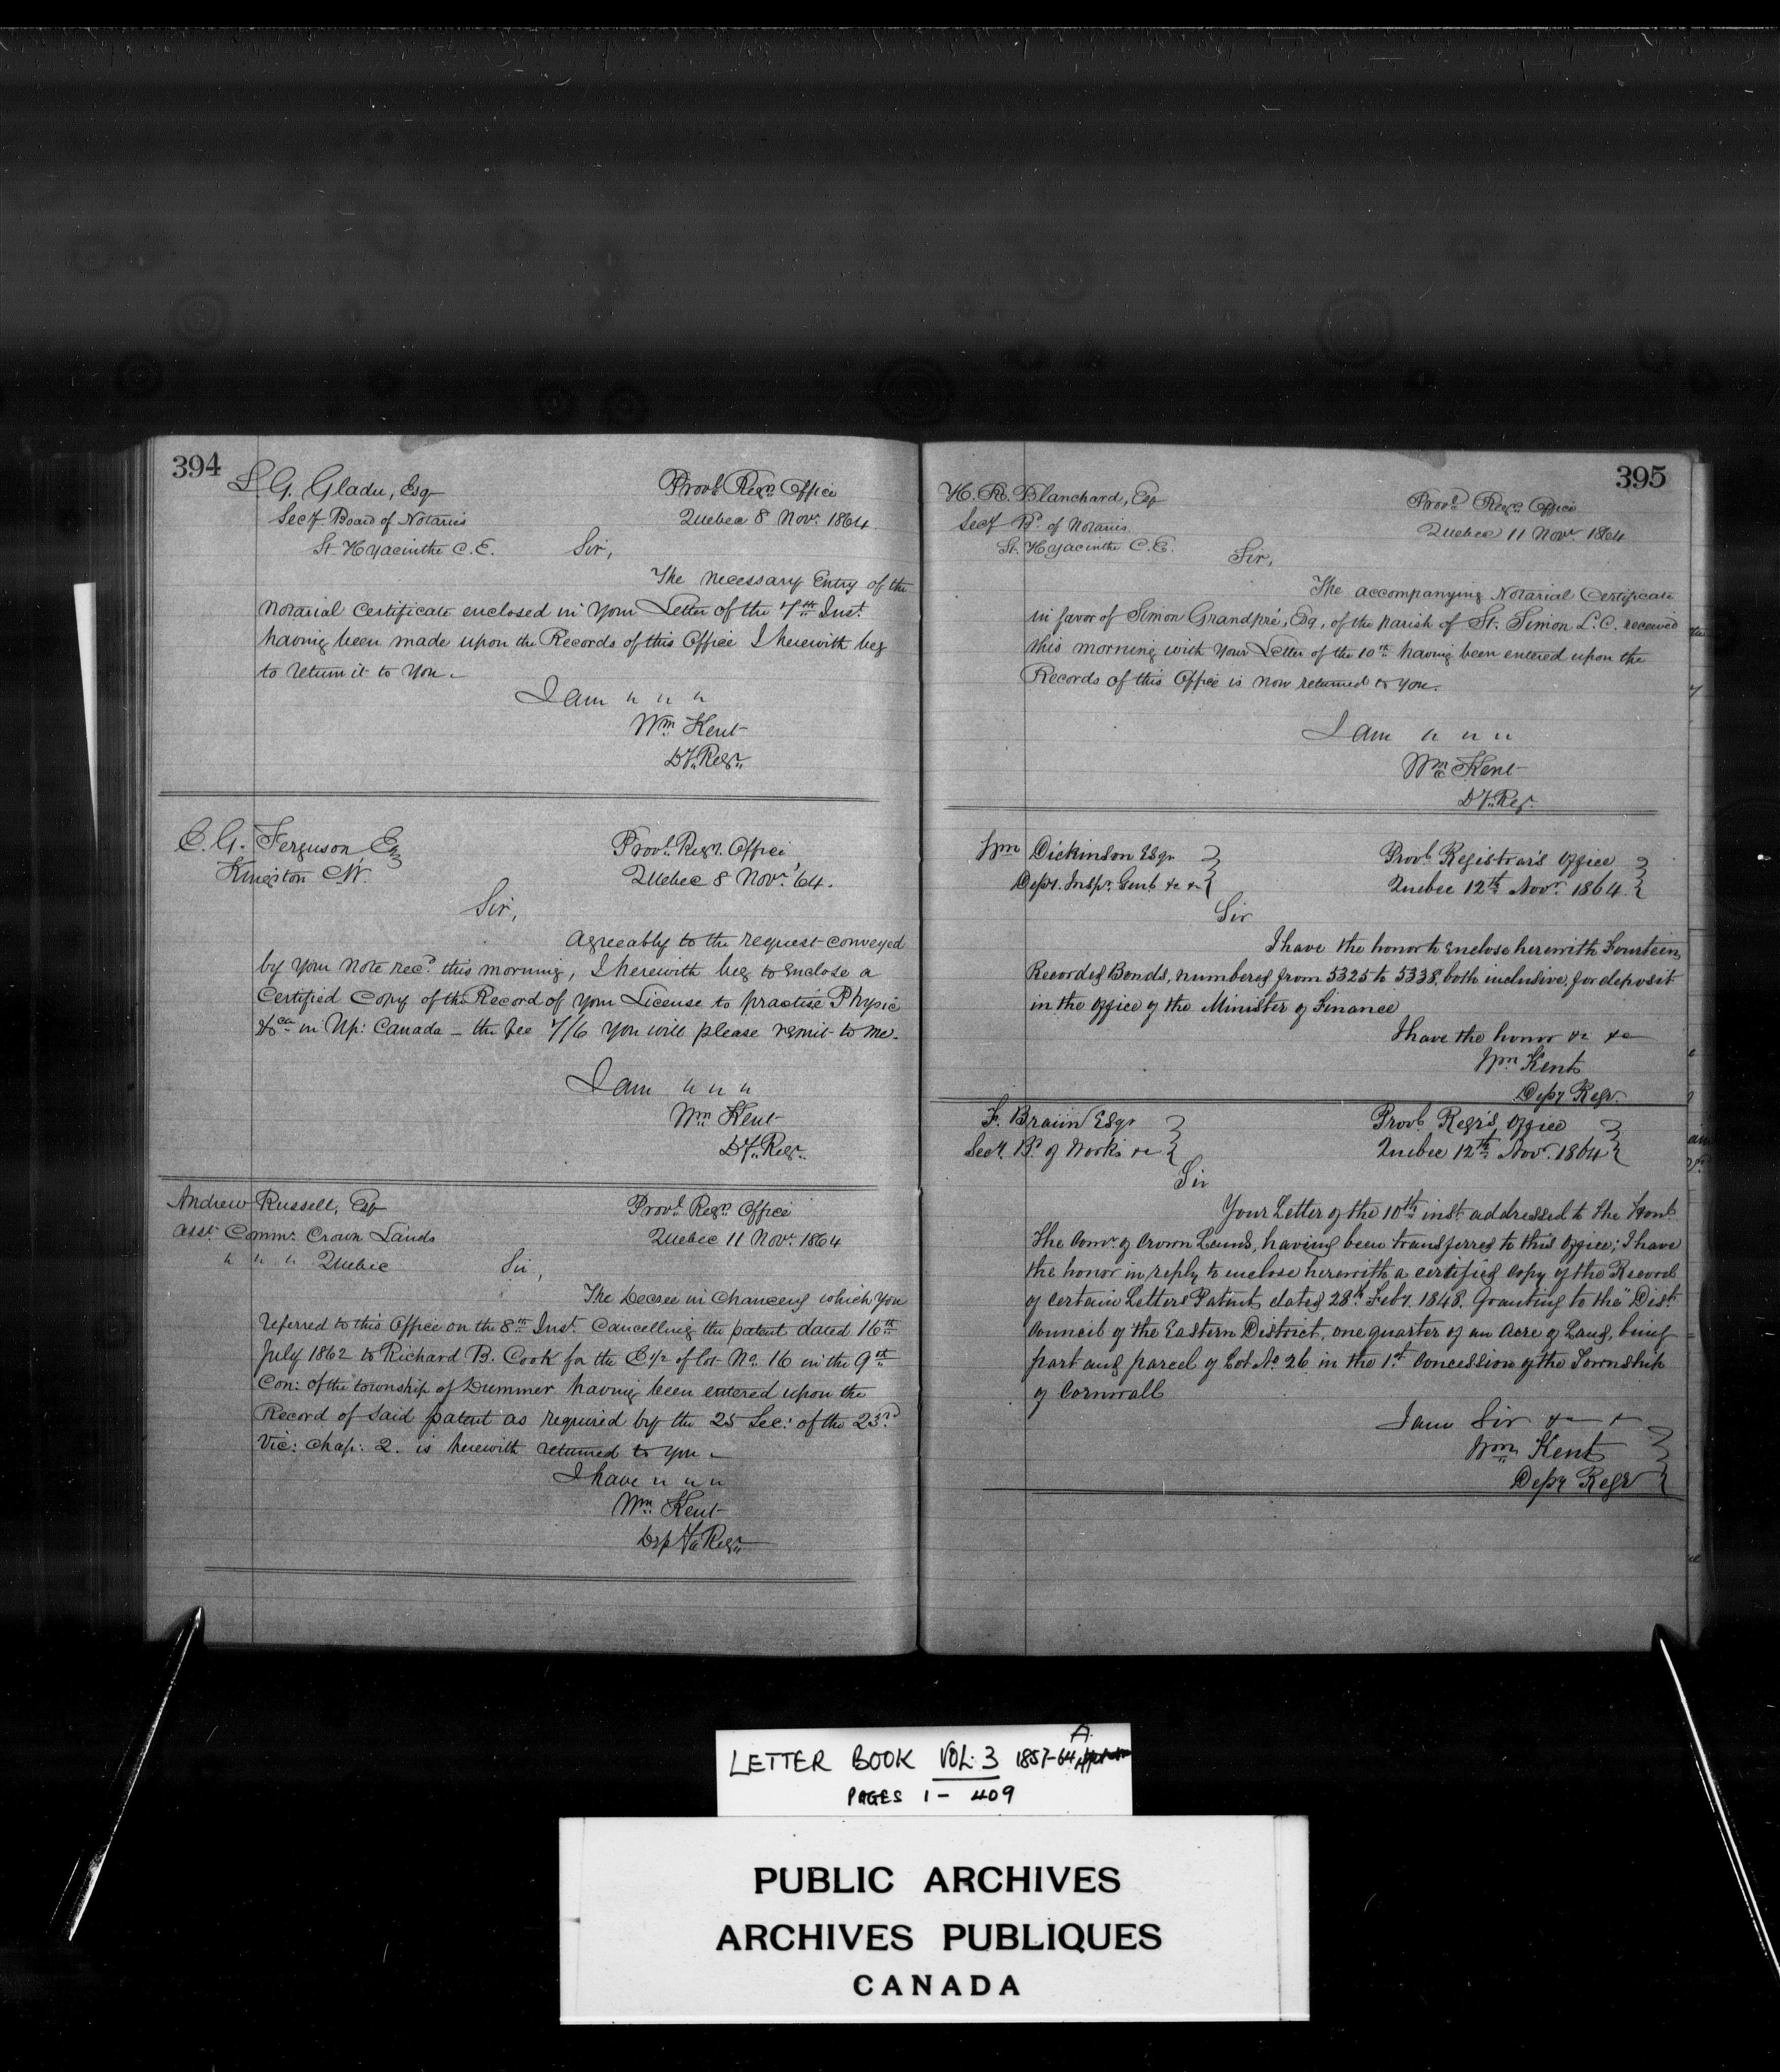 394
L. G. Gladu, Esq
Secy Board of Notaries
St. Hyacinthe C.E.
Provl. Regrs. Office
Quebec 8 Novr. 1864
Sir,
The necessary Entry of the
Notarial Certificate enclosed in your Letter of the 7th Inst.
having been made upon the Records of this Office I herewith beg
to return it to you.
I am " " "
Wm. Kent
Dy. Regr.
C. G. Ferguson Esq
Kingston C.W.
Provl. Regr. Office
Quebec 8 Novr. '64.
Sir,
Agreeably to the request conveyed
by your note recd. this morning, I herewith beg to enclose a
Certified Copy of the Record of your License to practise Physic
&ca in Up: Canada – the fee 7/6 you will please remit to me.
I am " " "
Wm. Kent
Dy. Regr.
Andrew Russell, Esq
Asst. Commr. Crown Lands
" " " Quebec
Provl. Regrs Office
Quebec 11 Novr. 1864
Sir,
The Decree in Chancery which you
referred to this Office on the 8th Inst. Cancelling the patent dated 16th
July 1862 to Richard B. Cook for the E 1/2 of lot No. 16 in the 9th
Con: of the township of Dummer having been entered upon the
Record of said patent as required by the 25 Sec: of the 23rd
Vic: Chap: 2. is herewith returned to you –
I have " " "
Wm. Kent
Depy. Regr.
395
H. R. Blanchard, Esq
Secy Bd. of Notaries
St. Hyacinthe C.E.
Provl. Regrs. Office
Quebec 11 Novr. 1864
Sir,
The accompanying Notarial Certificate
in favor of Simon Grandpré, Esq, of the parish of St. Simon L.C. received
this morning with your Letter of the 10th having been entered upon the
Records of this Office is now returned to you.
I am " " "
Wm. Kent
Dy. Regr.
Wm Dickinson Esqr
Depy. Inspr. Genl. &c &c
Provl. Registrar's Office
Quebec 12th Novr. 1864.
Sir
I have the honor to enclose herewith Fourteen
Recorded Bonds, numbered from 5325 to 5338, both inclusive, for deposit
in the Office of the Minister of Finance
I have the honor &c &c
Wm. Kent
Depy Regr.
F. Braun Esqr
Secy. Bd. of Works &c
Provl. Regr's Office
Quebec 12th Novr. 1864
Sir
Your Letter of the 10th inst. addressed to the Honl.
the Comr. of Crown Lands, having been transferred to this Office; I have
the honor in reply to enclose herewith a certified Copy of the Record
of certain Letters Patent, dated 28th Feby. 1848. Granting to the "Dist.
Council of the Eastern District, one quarter of an Acre of Land, being
part and parcel of Lot No. 26 in the 1st Concession of the Township
of Cornwall
I am Sir &c &
Wm. Kent
Depy Regr
LETTER BOOK VOL. 3 1857-64 A
PAGES 1 - 409
PUBLIC ARCHIVES
ARCHIVES PUBLIQUES
CANADA